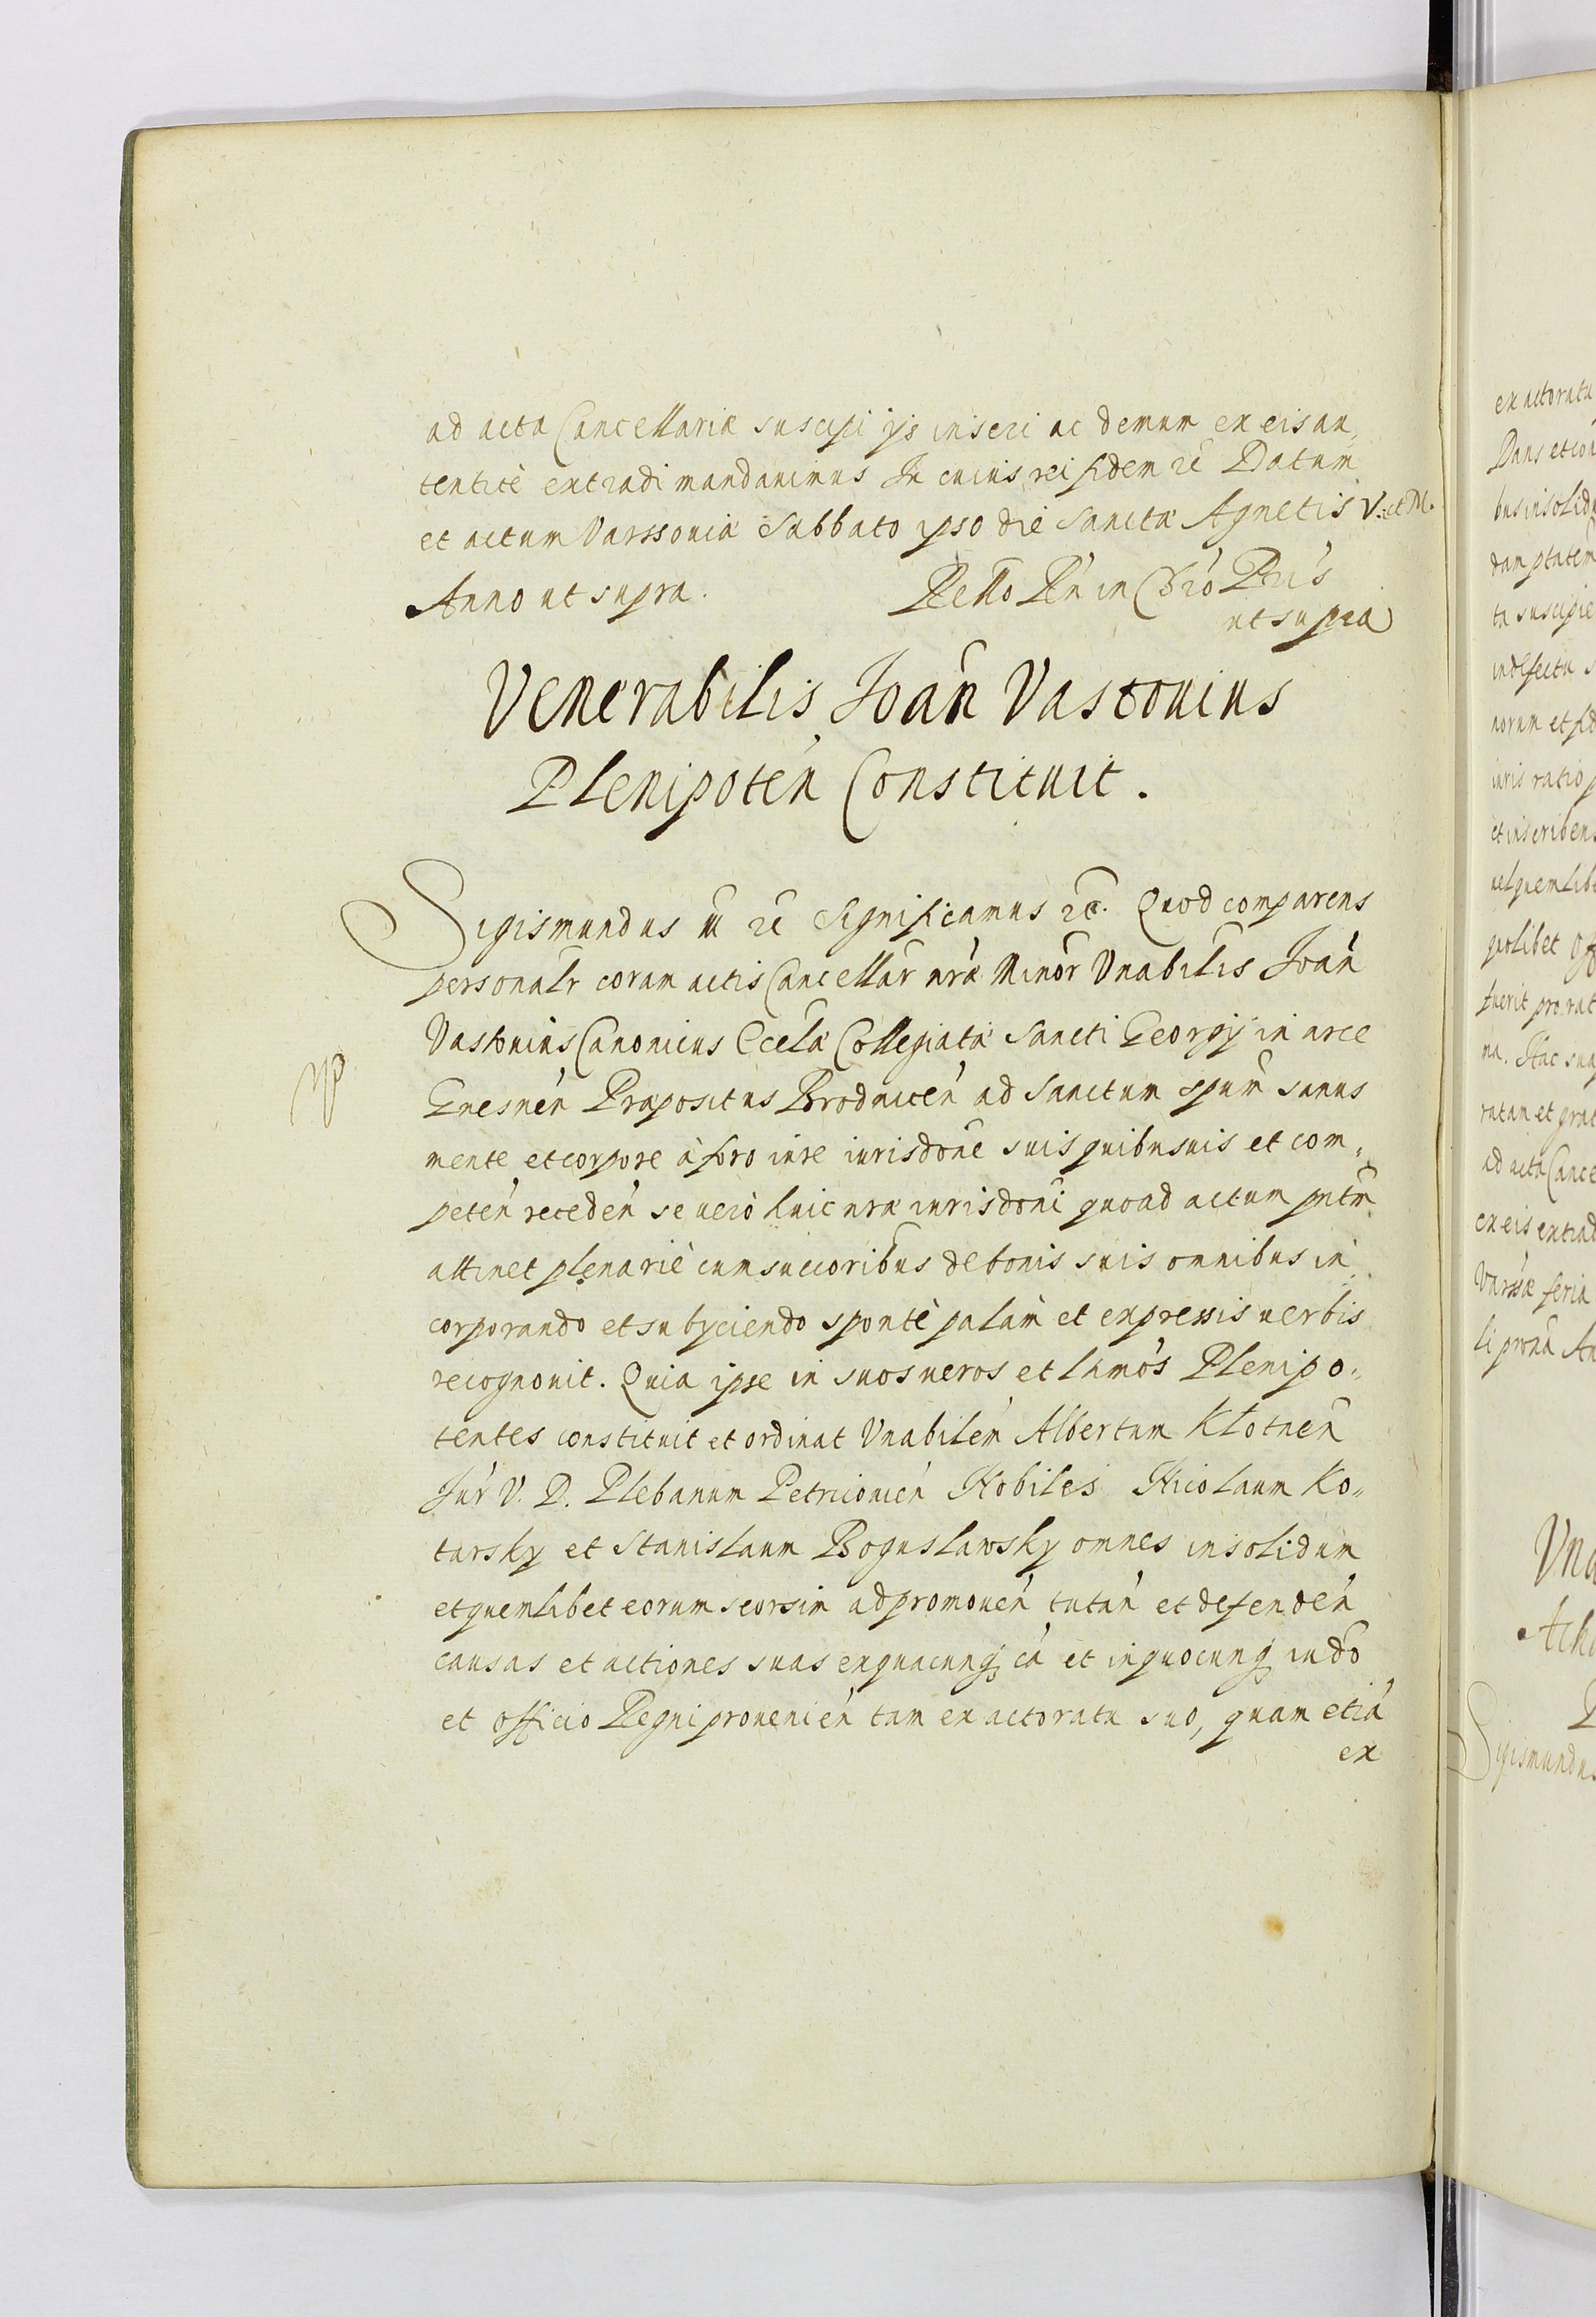 ad acta Cancellariæ suscipi ijs inseri ac demum ex eis au„
tenticè extradi mandauimus In cuius rei fidem &c̃ Datum
et actum Varssouiæ Sabbato ipso die Sanctæ Agnetis V. et M.
Anno ut supra.
ut supra
Venerabilis Joan̄ Vastouius
Plenipotén Constituit.
Sigismundus III &c̃ Significamus &c̃. Quod comparens
personalr coram actis Cancellar nræ Minor Vnabilis Joán
Vastouius Canonicus Eccłæ Collegiatæ Sancti Georgij in arce
Gnesnén Præpositus Brodnicén ad Sanctum spūm sanus
mente et corpore à foro iure iurisdone suis quibusuis et com„
petén recedén se uerò huic nræ iurisdoni quoad actum pntm̃
attinet plenariè cum succoribus de bonis suis omnibus in
corporando et subyciendo spontè palàm et expressis uerbis
recognouit. Quia ipse in suos ueros et lamós Plenipo„
tentes constituit et ordinat Vnabilém Albertum Klotnén
Jur V. D. Plebanum Petricouién Nobiles Nicolaum Ko„
tarsky et Stanislaum Boguslawsky omnes in solidum
et quemlibet eorum seorsim ad promouén tután et defendén
causas et actiones suas ex quacunq̨ cá et in quocunq̨ iudo
et officio Regni prouenién tam ex actoratu suo, quam etiá
ex
exactoratu
bus in solidu
dam ptatem
ta suscipie
in defectu s
norum et fid
iuris ratio p
et inscribens
uel quemlibe
quolibet Off
fuerit pro rat
na. Hac sua
ratam et grat
ad acta Cance
ex eis extrad
Varssæ feria
Vna
Sigismundus